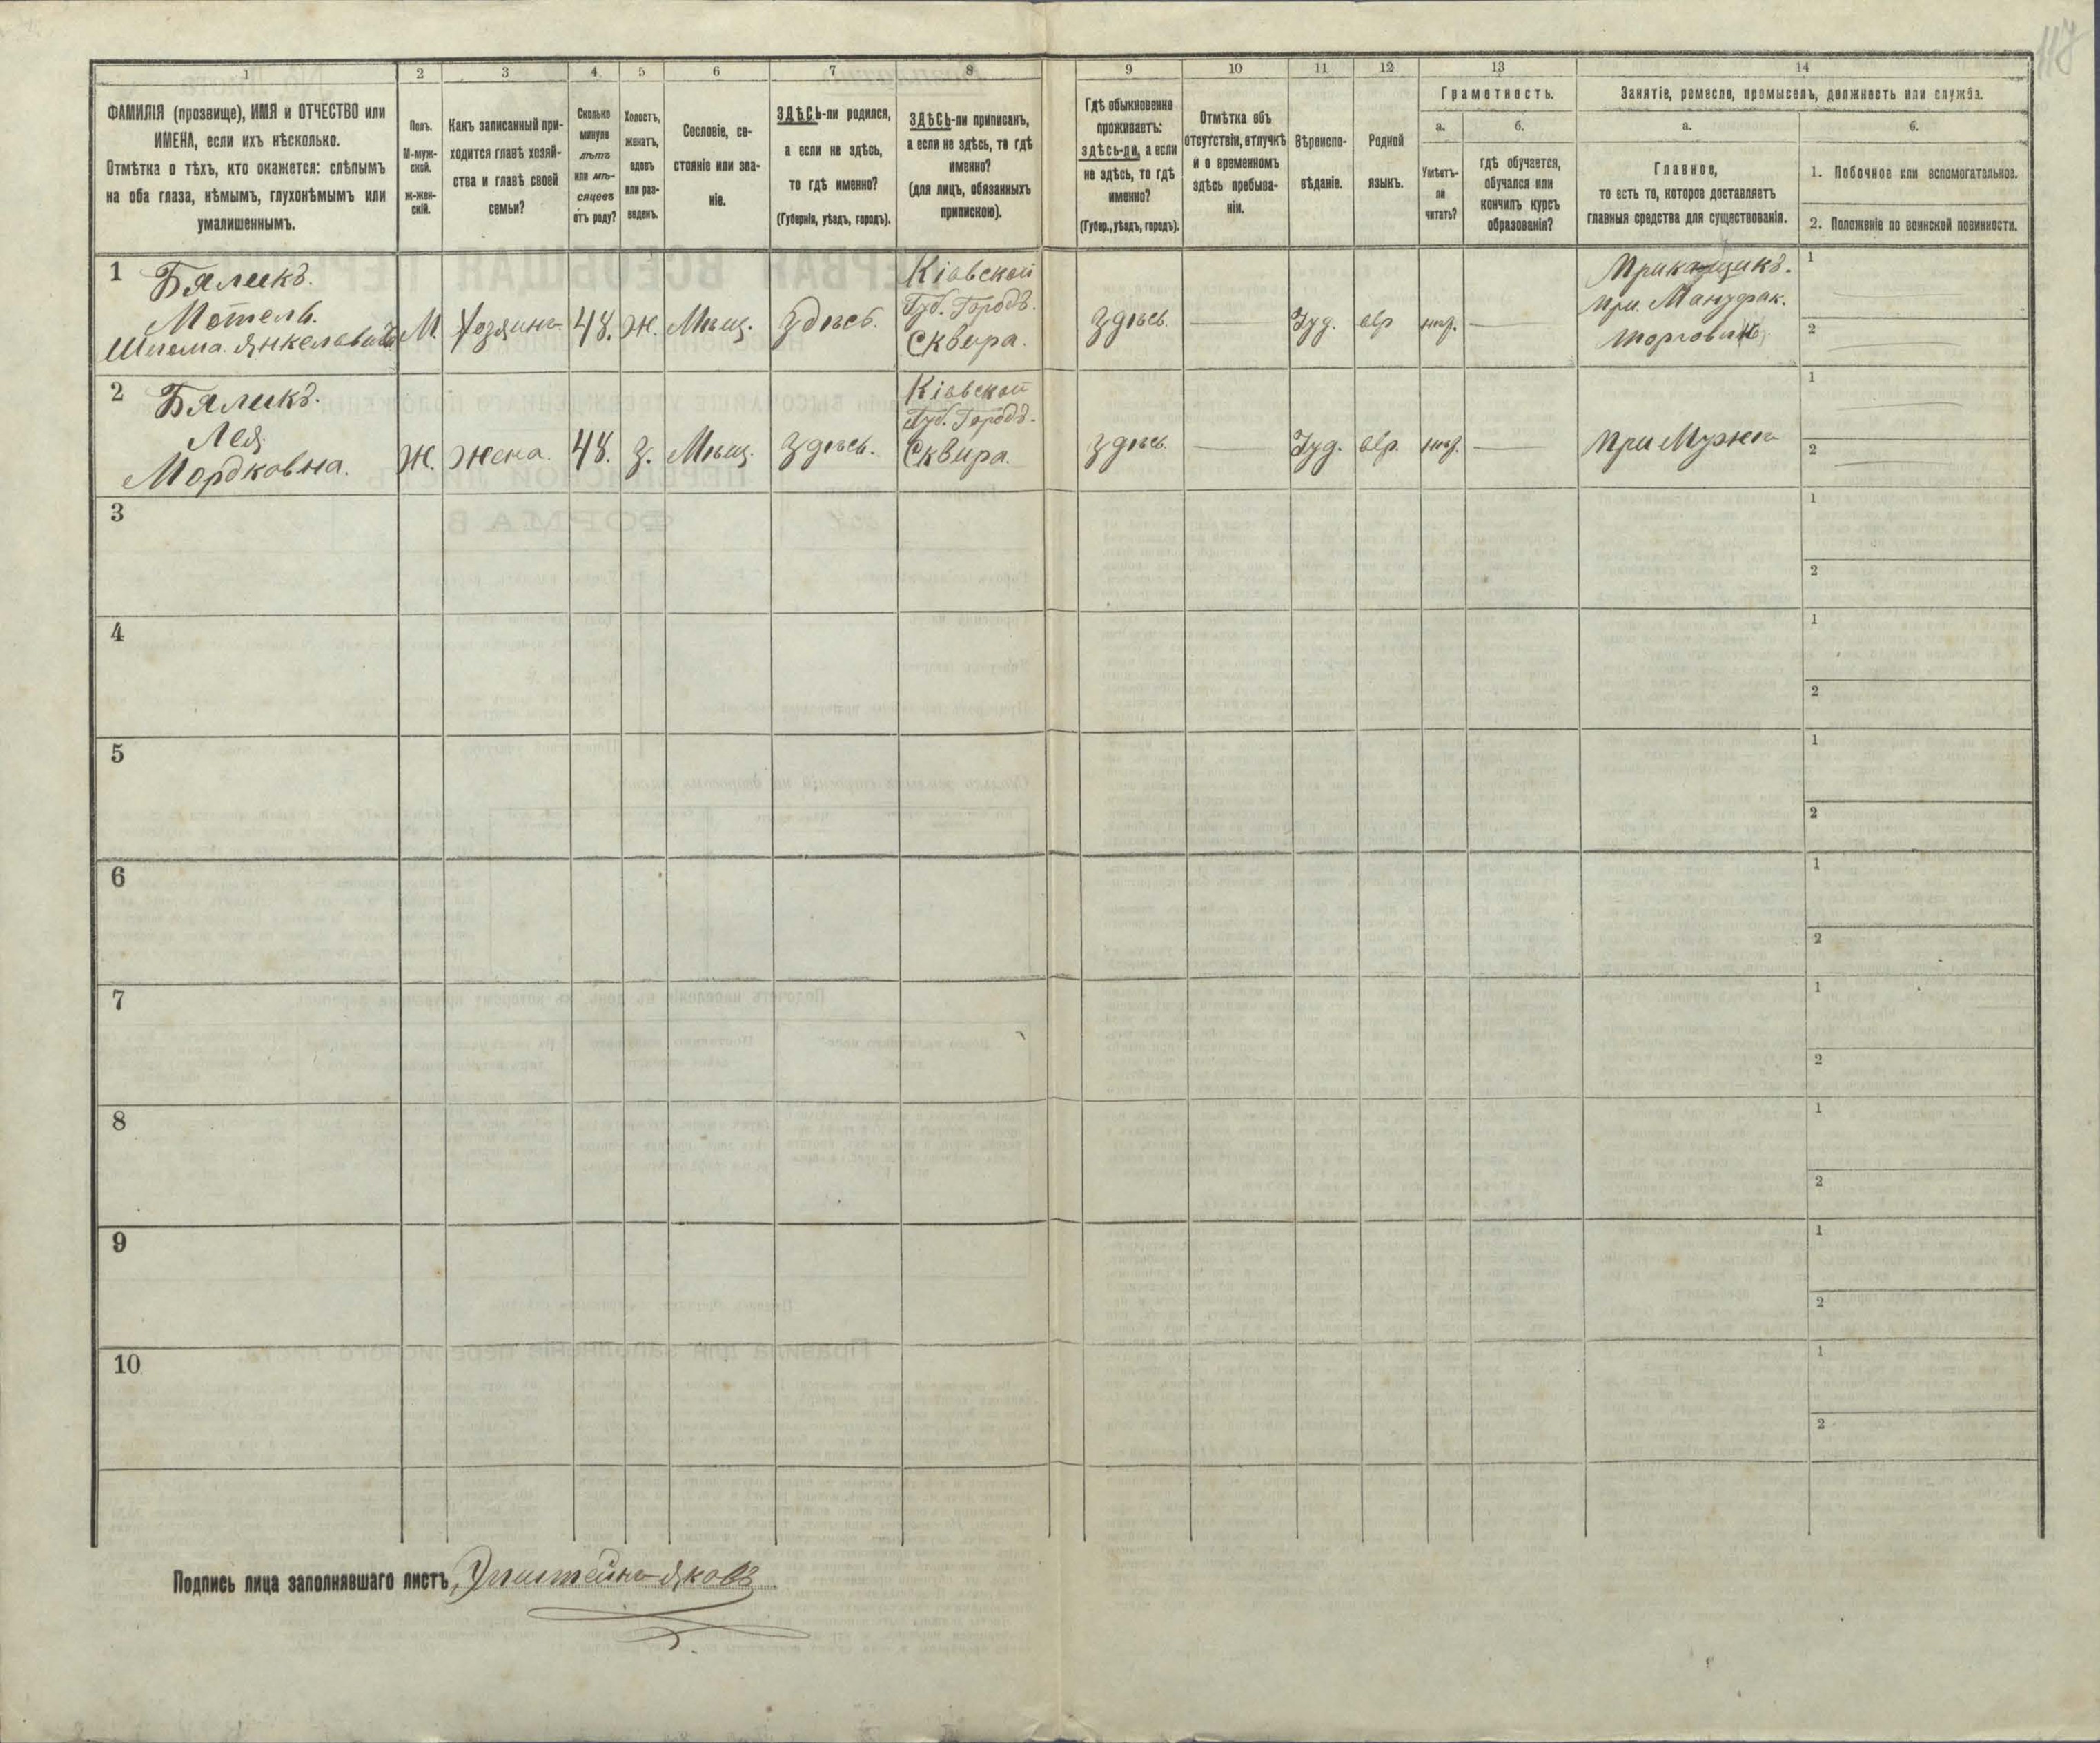 117
1 2 3 4 5 6 7 8 9 10 11 12 13 14
ФАМИЛІЯ (прозвище), ИМЯ и ОТЧЕСТВО или
ИМЕНА, если ихъ нѣсколько.
Отмѣтка о тѣхъ, кто окажется: слѣпымъ
на оба глаза, нѣмымъ, глухонѣмымъ или
умалишеннымъ.
Полъ.
М-муж-
ской.
ж-жен-
скій.
Какъ записанный при-
ходится главѣ хозяй-
ства и главѣ своей
семьи?
Сколько
минуло
лѣтъ
или мѣ-
сяцевъ
отъ роду?
Холостъ,
женатъ,
вдовъ
или раз-
веденъ.
Сословіе, со-
стояніе или зва-
ніе.
ЗДѢСЬ-ли родился,
а если не здѣсь,
то гдѣ именно?
(Губернія, уѣздъ, городъ).
ЗДѢСЬ-ли приписанъ,
а если не здѣсь, то гдѣ
именно?
(для лицъ, обязанныхъ
припискою).
Гдѣ обыкновенно
проживаетъ:
здѣсь-ли, а если
не здѣсь, то гдѣ
именно?
(Губер., уѣздъ, городъ).
Отмѣтка объ
отсутствіи, отлучкѣ
и о временномъ
здѣсь пребыва-
ніи.
Вѣроиспо-
вѣданіе.
Родной
языкъ.
Грамотность.
а.
Умѣетъ-
ли
читать?
б.
гдѣ обучается,
обучался или
кончилъ курсъ
образованія?
Занятіе, ремесло, промыселъ, должность или служба.
а.
Главное,
то есть то, которое доставляетъ
главныя средства для существованія.
б.
1. Побочное или вспомогательное.
2. Положеніе по воинской повинности.
1 Бяликъ.
Мотель.
Шлема. Янкелевичъ
М. Хозяинъ 48. Ж. Мѣщ. Здѣсь.
Кіевской
Губ. Городъ.
Сквира.
Здѣсь Іуд. евр нѣт.
Приказщикъ.
при. Мануфак.
торговли
1
2
2 Бяликъ.
Лея.
Мордковна.
Ж. Жена. 48. З. Мѣщ. Здѣсь.
Кіевской
Губ. Городъ.
Сквира.
Здѣсь Іуд. евр. нѣт. При Мужѣ
1
2
3
1
2
4
1
2
5
1
2
6
1
2
7
1
2
8
1
2
9
1
2
10
1
2
Подпись лица заполнявшаго листъ